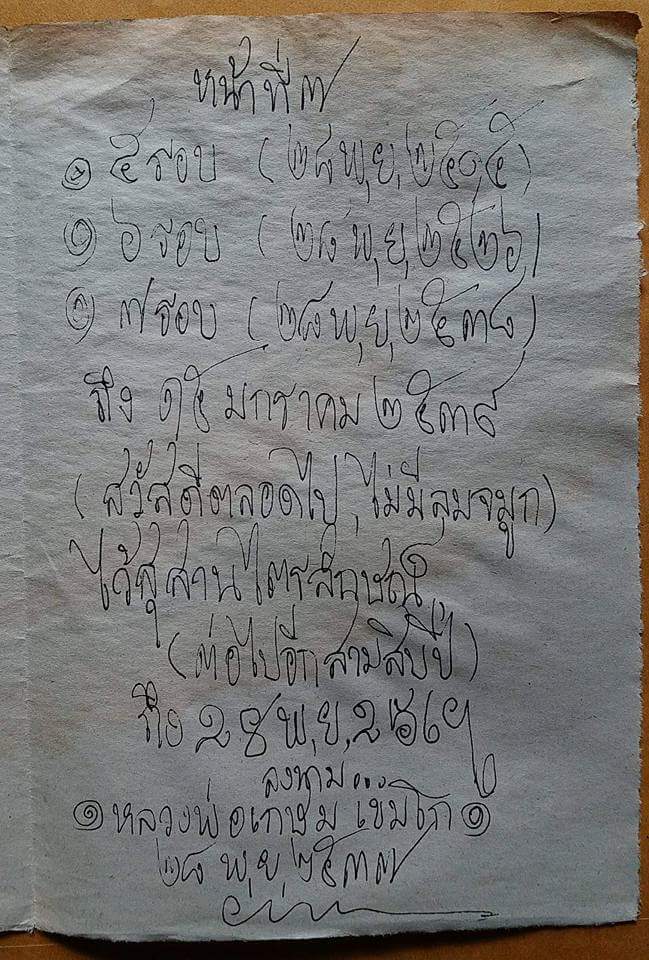 หน้าที่ ๗
๑ ๕ รอบ (๒๘ พ,ย,๒๕๑๕)
๑ ๖ รอบ (๒๘ พ,ย,๒๕๒๖)
๑ ๗ รอบ (๒๘ พ,ย,๒๕๓๘)
ถึง ๑๕ มกราคม ๒๕๓๙
(สวัสดีตลอดไป, ไม่มีลมจมูก)
ไว้สุสานไตรลักษณ์,
(ต่อไปอีกสามสิบปี)
ถึง ๒๘ พ,ย,
ลงนาม...
๑ หลวงพ่อเกษม เขมโก ๑
๒๘ พ,ย,๒๕๓๗